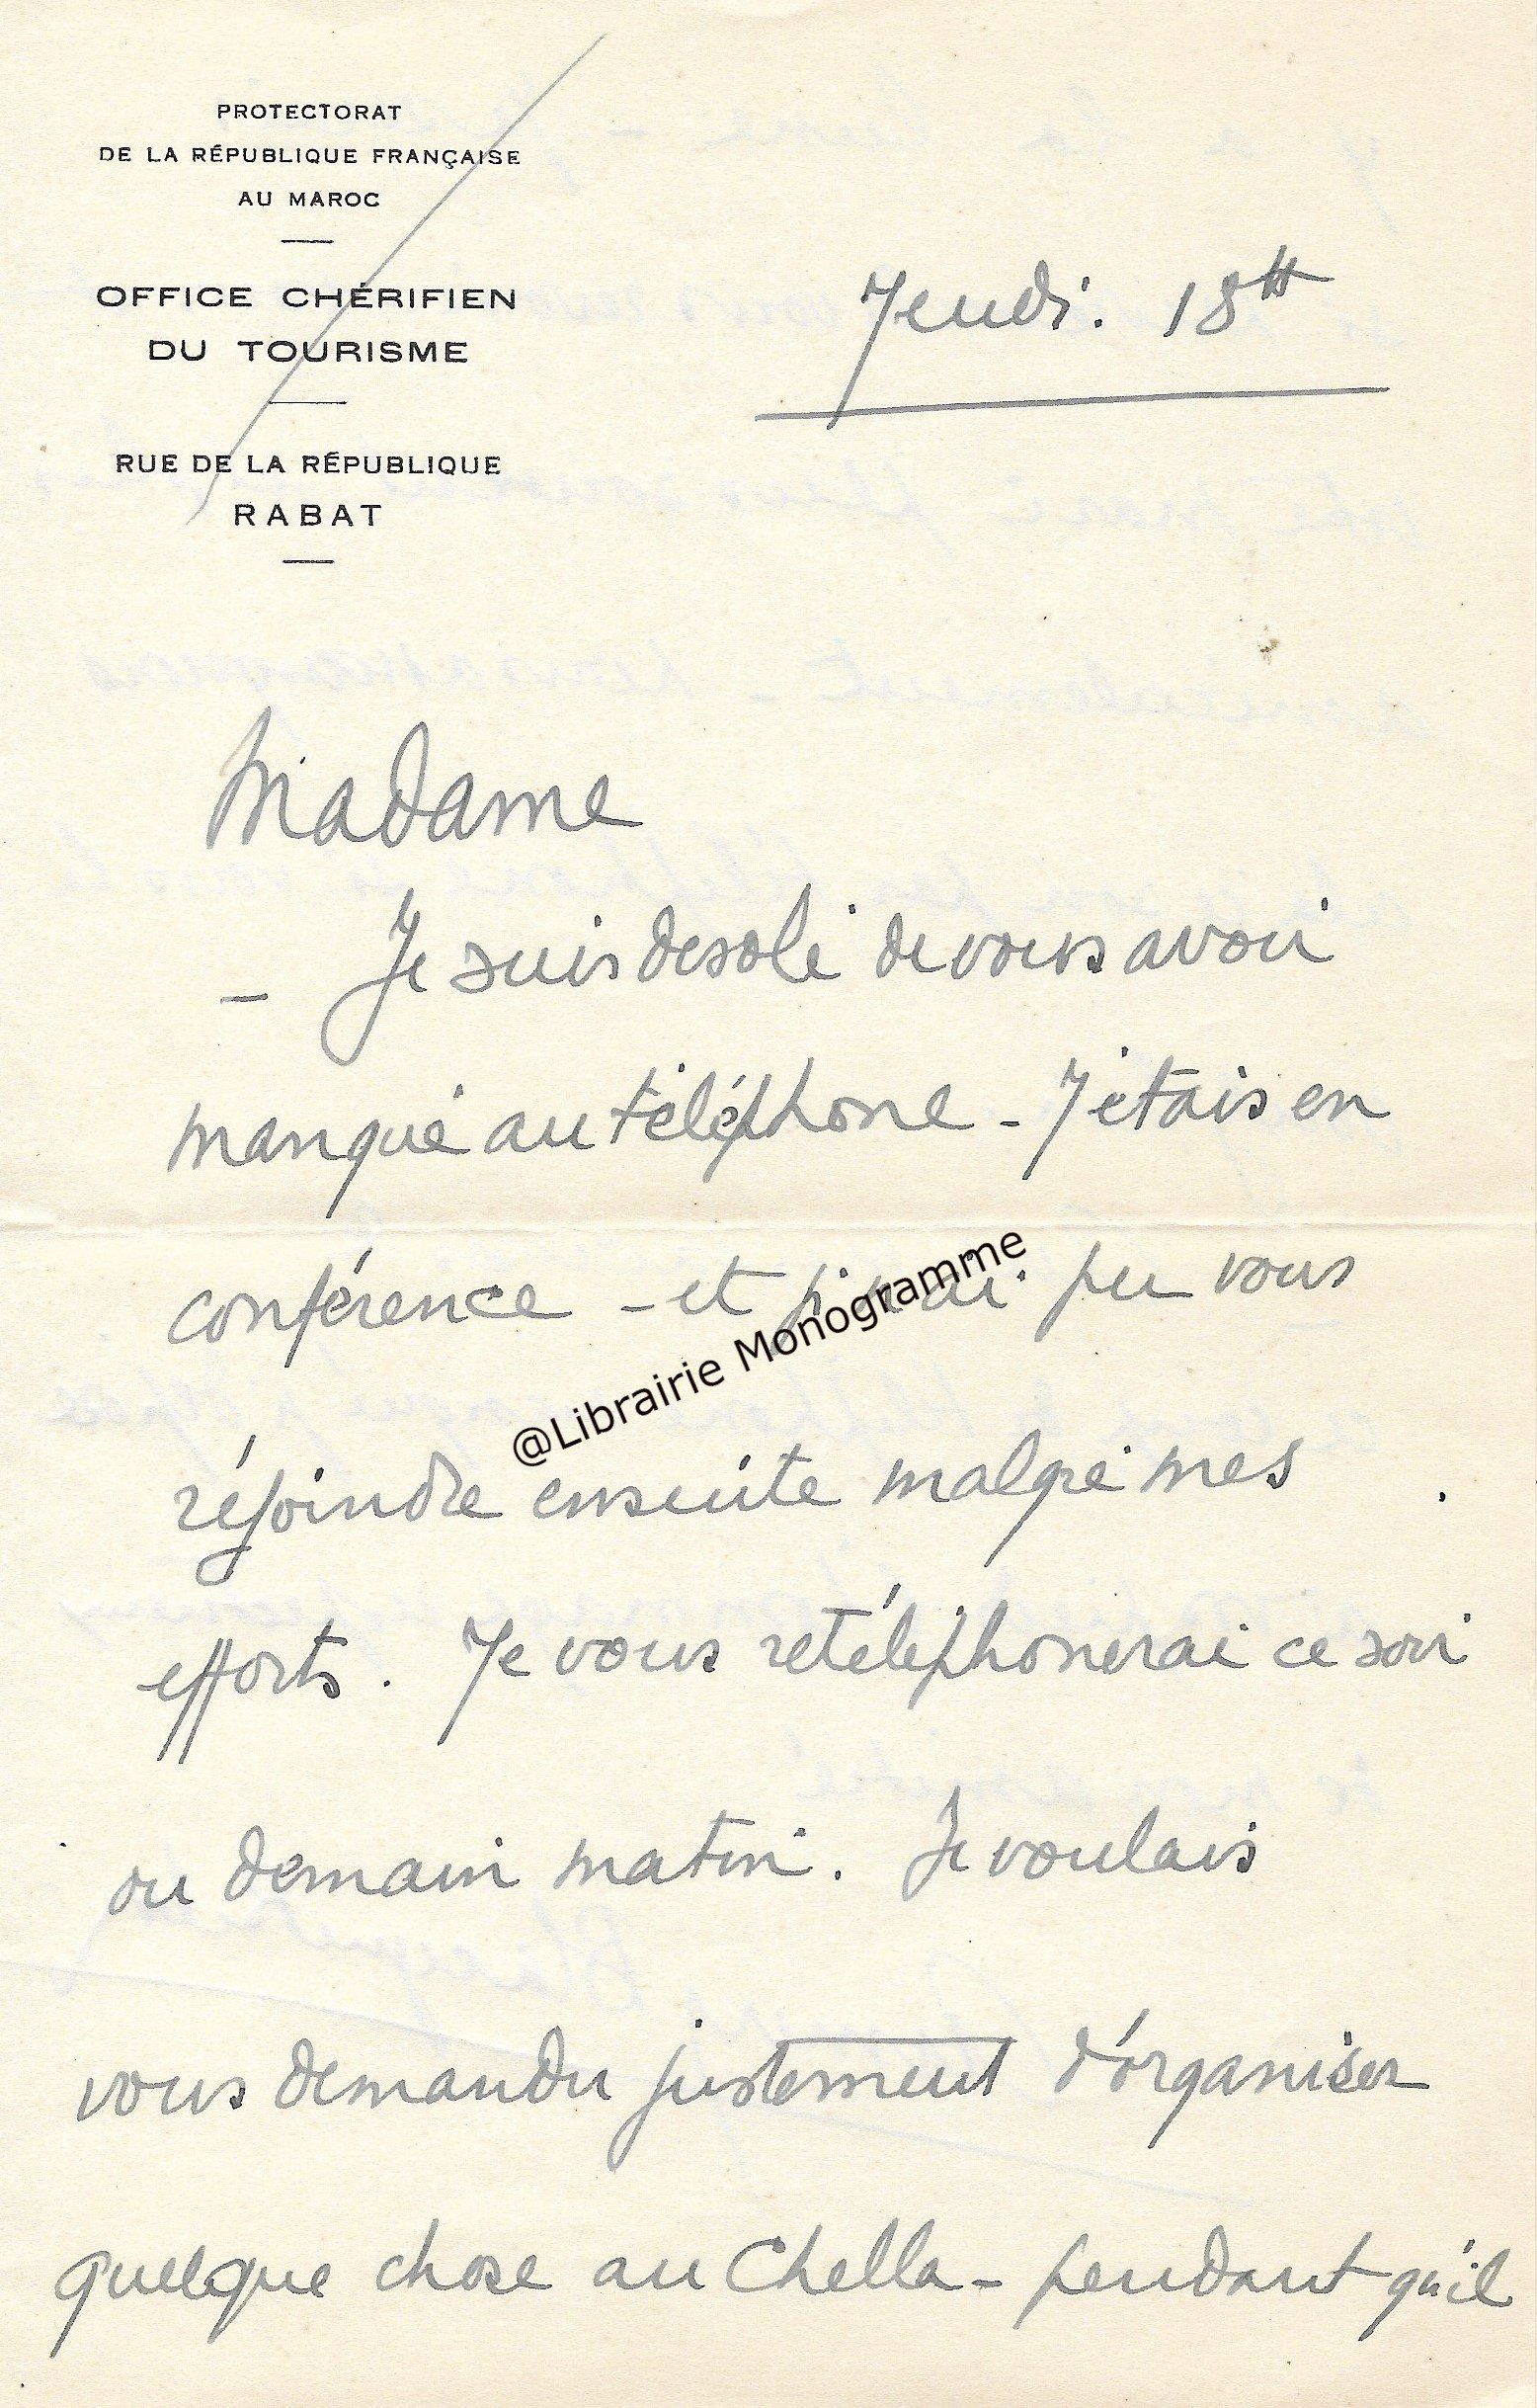 PROTECTORAT
DE LA RÉPUBLIQUE FRANÇAISE
AU MAROC
OFFICE CHÉRIFIEN
DU TOURISME
RUE DE LA RÉPUBLIQUE
RABAT
Jeudi. 18
Madame
– Je suis desolé de vous avoir
manqué au téléphone – J'étais en
conférence – et je n'ai pu vous
@Librairie Monogramme
réjoindre ensuite malgré mes
efforts. Je vous retéléphonerai ce soir
ou demain matin. Je voulais
vous demander justement d'organiser
quelque chose au Chella – pendant qu'il